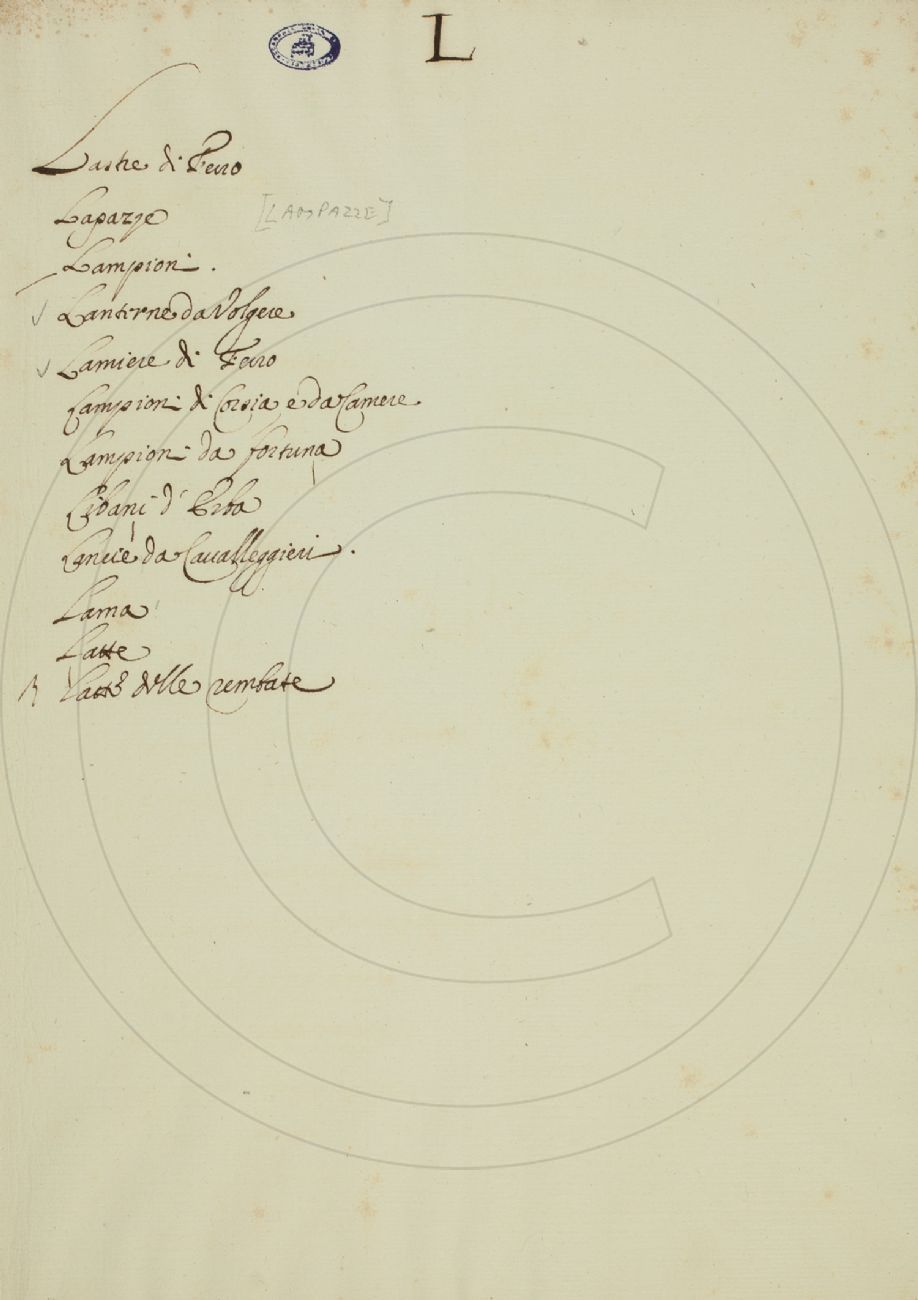 L
Lastre di Ferro
Lapazze
Lampioni.
Lanterne da Volgere
Lamiere di Ferro
Lampioni di Corsia e da Camere
Lampioni da fortuna
Libani d'Erba
Lancie da Cavalleggieri.
Lama
Latte
Latte delle rembate